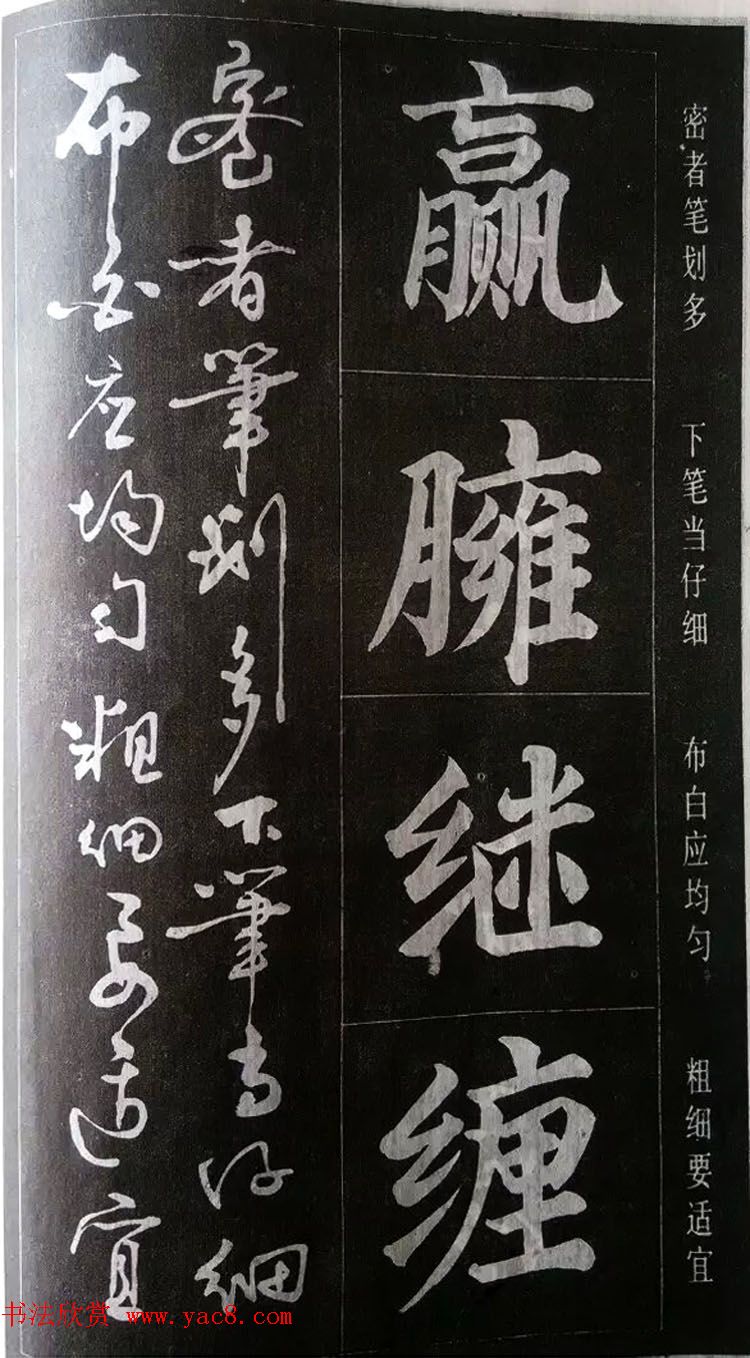 密者笔划多 下笔当仔细 布白应均匀 粗细要适宜
赢
臃
继
缠
密者筆划多下筆当仔细
布白应均匀粗细要适宜
书法欣赏 www.yac8.com